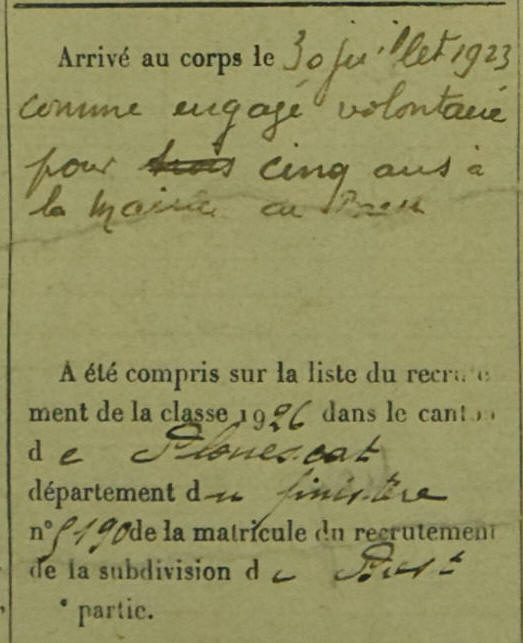 Arrivé au corps le 30 juillet 1923
comme engagé volontaire
pour trois cinq ans à
la Mairie de Brest
A été compris sur la liste du recrute
ment de la classe 1926 dans le canton
de Plouescat
département du finistère
n° 5190 de la matricule du recrutement
de la subdivision de Brest
° partie.